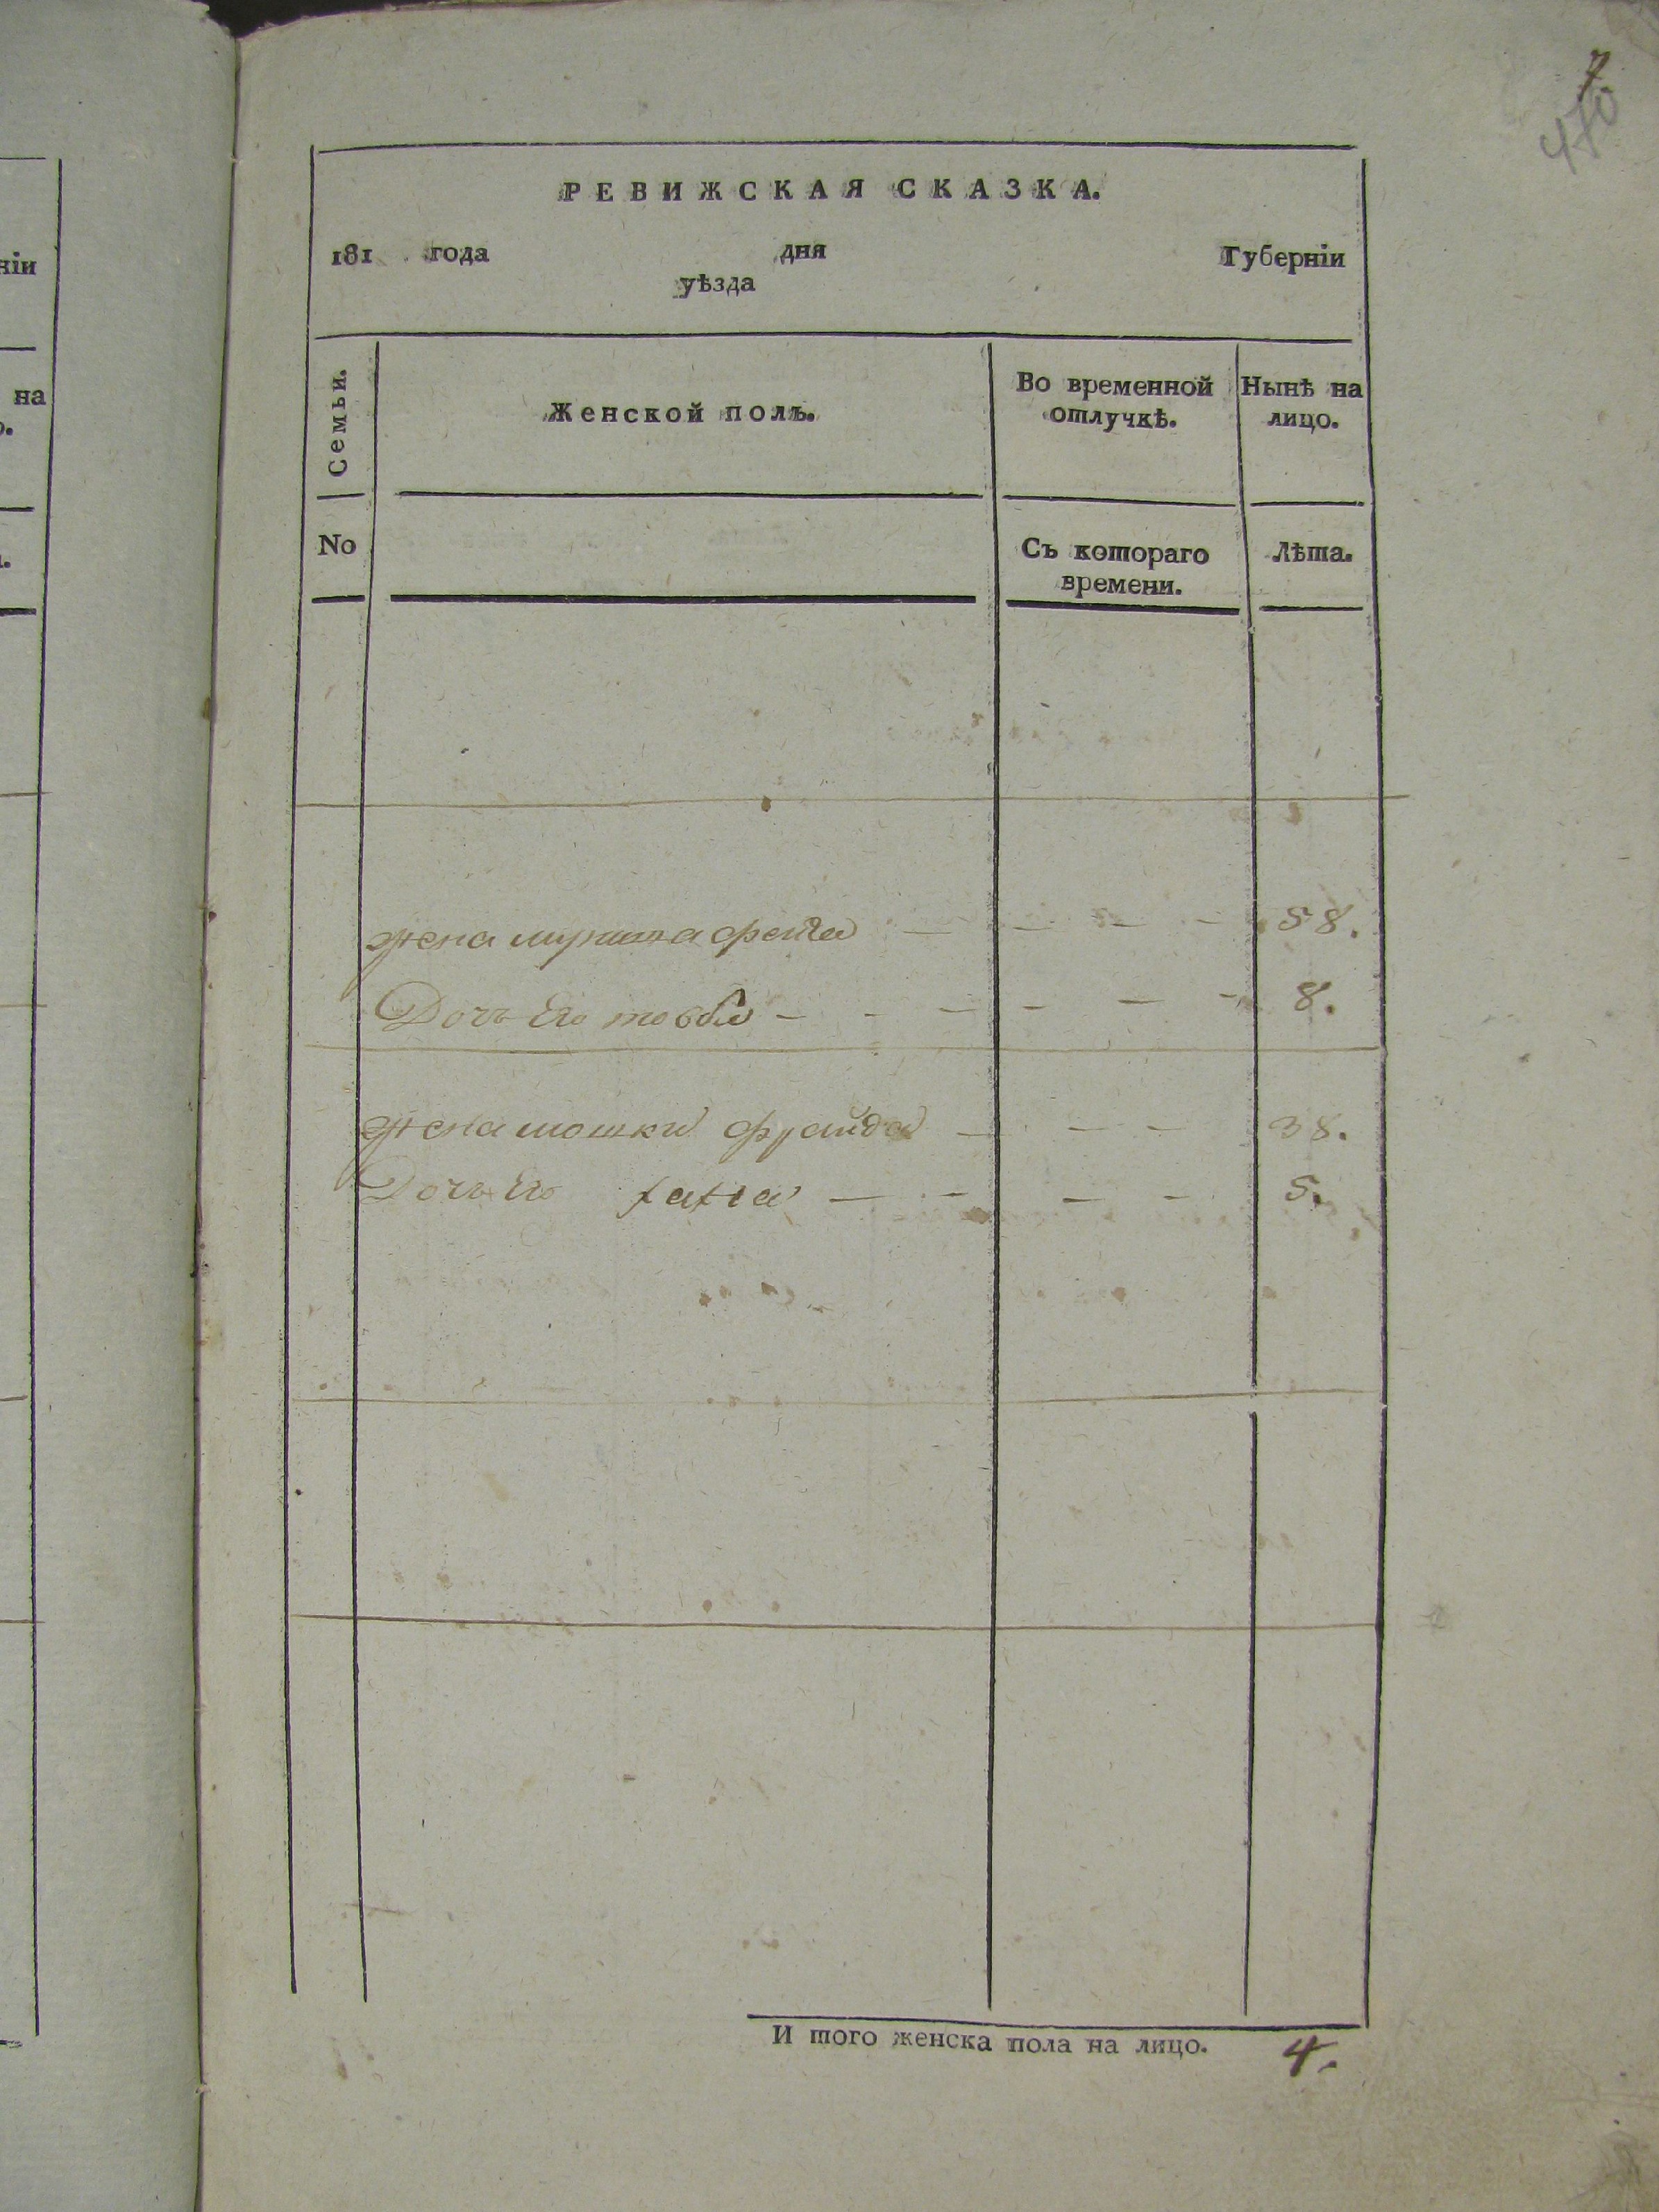 7.
470
РЕВИЖСКАЯ СКАЗКА.
181 года дня Губерніи
уѣзда
Семьи.
Женской полъ.
Во временной отлучкѣ.
Нынѣ на лицо.
No
Съ котораго времени.
Лѣта.
жена 58.
Дочь Его товба 8.
жена мошки фрайда 38.
Дочь Его хахіа 5.
И того женска пола на лицо. 4.
ніи
на